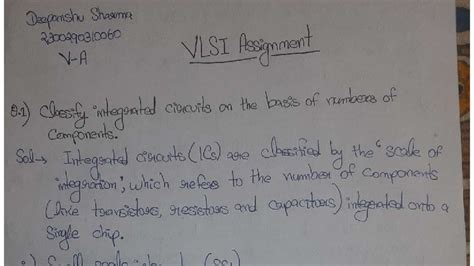 Deepanshu Sharma
2300290310060
V-A
VLSI Assignment
Q.1) Classify integrated circuits on the basis of numbers of
Components.
Sol→ Integrated circuits (ICs) are classified by the "scale of
integration", which refers to the number of Components
(like transistors, resistors and capacitors) integrated onto a
Single chip.